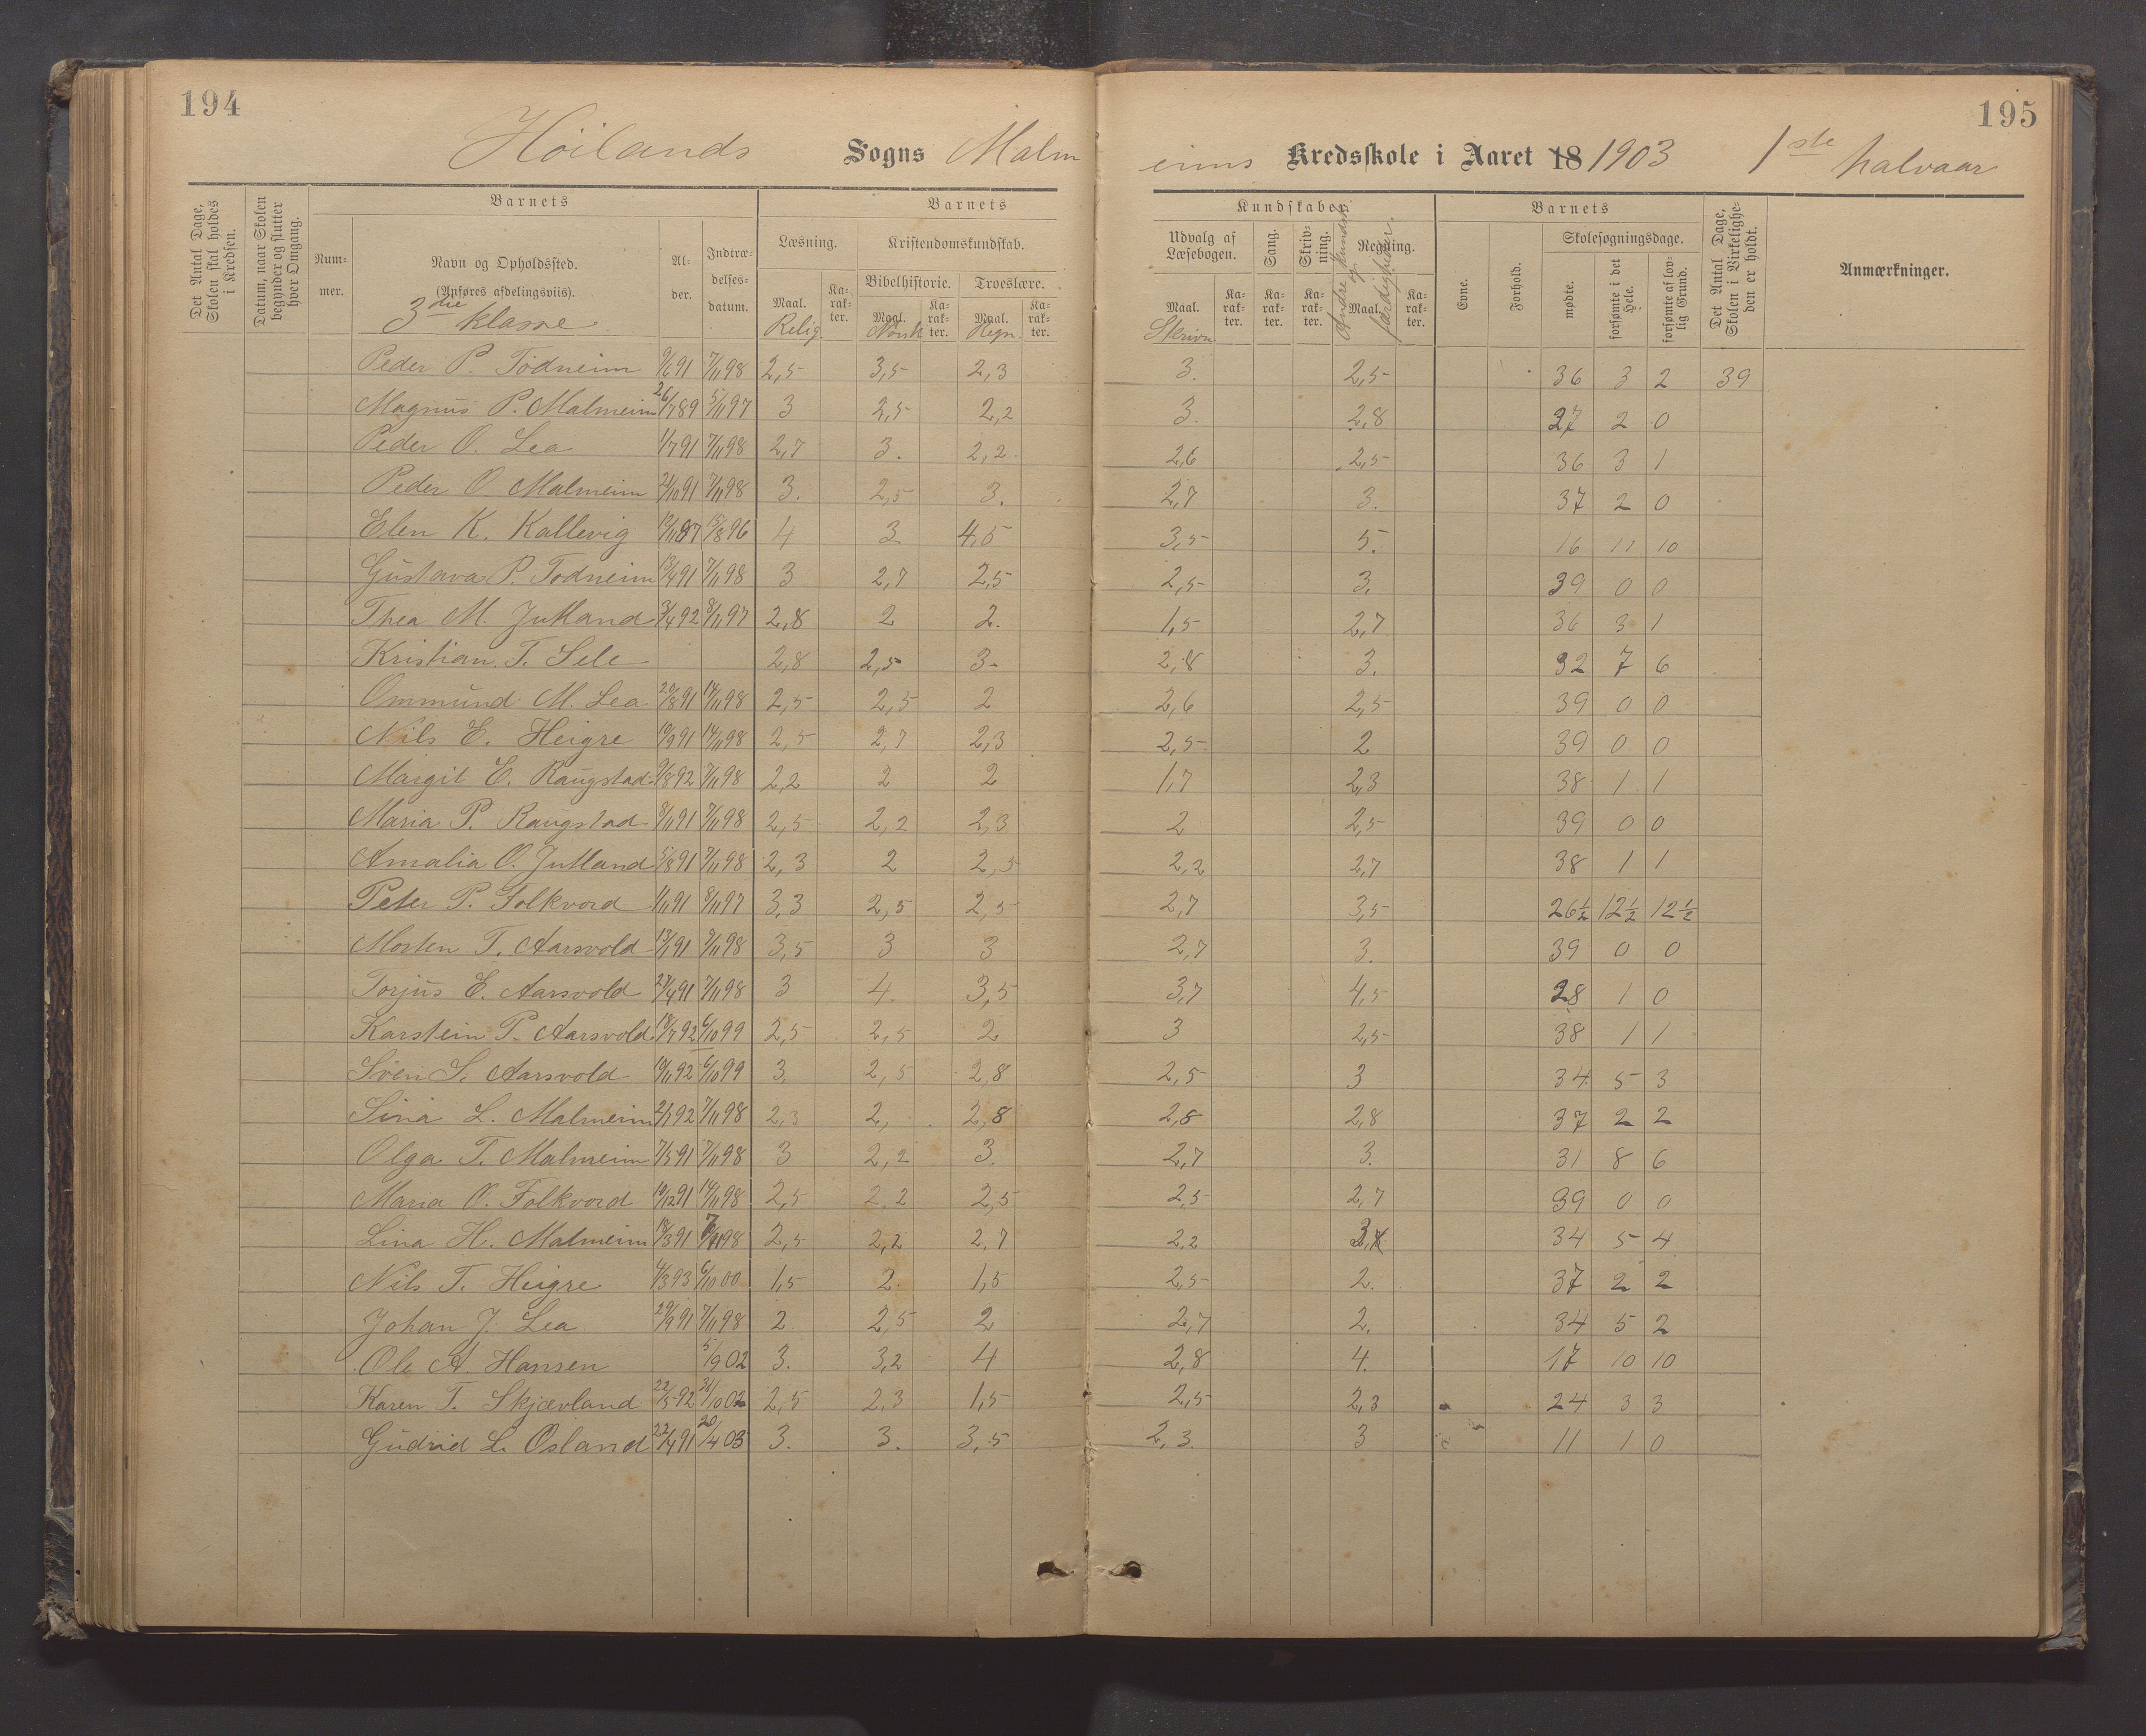 194
195
Höilands Sogns Malmeims Kredsskole i Aaret 18 1903 1ste halvaar
Det Antal Dage, Skolen skal holdes i Kredsen.
Datum, naar Skolen begynder og slutter hver Omgang.
Barnets
Barnets
Kundskaber.
Barnets
Nummer.
Navn og Opholdssted. (Anføres afdelingsviis).
3die klasse
Alder.
Indtrædelsesdatum.
Læsning.
Maal. Karakter.
Relig
Kristendomskundskab.
Bibelhistorie. Troeslære.
Maal. Karakter. Maal. Karakter.
Norsk Regn
Udvalg af Læsebogen.
Maal. Karakter.
Skrivn
Sang. Karakter.
Skrivning. Karakter.
Regning.
Maal. Karakter.
Andre kundsk og færdigheder.
Evne.
Forhold.
Skolesøgningsdage.
mødte. forsømte i det Hele. forsømte af lovlig Grund.
Det Antal Dage, Skolen i Virkeligheden er holdt.
Anmærkninger.
Peder P. Todneim 9/6 91 7/11 98 2,5 3,5 2,3 3. 2,5 36 3 2 39
Magnus P. Malmeim 26/7 89 5/11 97 3 2,5 2,2 3. 2,8 37 2 0
Peder O. Lea 1/7 91 7/11 98 2,7 3. 2,2 2,6 2,5 36 3 1
Peder O. Malmeim 21/10 91 7/11 98 3. 2,5 3. 2,7 3. 37 2 0
Elen K. Kallevig 15/8 96 4 3 4,5 3,5 5. 16 11 10
Gustava P. Todneim 13/4 91 7/11 98 3 2,7 2,5 2,5 3. 39 0 0
Thea M. Jutland 3/4 92 8/11 97 2,8 2 2. 1,5 2,7 36 3 1
Kristian T. Sele 2,8 2,5 3. 2,8 3. 32 7 6
Ommund M. Lea 20/8 91 14/11 98 2,5 2,5 2 2,6 2,5 39 0 0
Nils E. Heigre 19/9 91 14/11 98 2,5 2,7 2,3 2,5 2 39 0 0
Margit E. Raugstad 9/8 92 7/11 98 2,2 2 2 1,7 2,3 38 1 1
Maria P. Raugstad 8/11 91 7/11 98 2,5 2,2 2,3 2 2,5 39 0 0
Amalia O. Jutland 5/8 91 7/11 98 2,3 2 2,5 2,2 2,7 38 1 1
Peter P. Folkvord 1/11 91 8/11 97 3,3 2,5 2,5 2,7 3,5 26½ 12½ 12½
Morten T. Aarsvold 13/1 91 7/11 98 3,5 3 3 2,7 3. 39 0 0
Torjus E. Aarsvold 27/4 91 7/11 98 3 4. 3,5 3,7 4,5 28 1 0
Karstein P. Aarsvold 18/7 92 6/10 99 2,5 2,5 2 3 2,5 38 1 1
Sven S. Aarsvold 19/11 92 6/10 99 3 2,5 2,8 2,5 3 34 5 3
Sina L. Malmeim 2/1 92 7/11 98 2,3 2, 2,8 2,8 2,8 37 2 2
Olga T. Malmeim 7/5 91 7/11 98 3 2,2 3. 2,7 3. 31 8 6
Maria O. Folkvord 19/12 91 14/11 98 2,5 2,2 2,5 2,5 2,7 39 0 0
Lina H. Malmeim 18/3 91 7/11 98 2,5 2,2 2,7 2,2 34 5 4
Nils T. Heigre 4/3 93 6/10 00 1,5 2 1,5 2,5 2. 37 2 2
Johan J. Lea 29/9 91 7/11 98 2 2,5 2 2,7 2. 34 5 2
Ole A. Hansen 5/9 02 3. 3,2 4 2,8 4. 17 10 10
Karen T. Skjævland 22/5 92 31/10 02 2,5 2,3 1,5 2,5 2,3 24 3 3
Gudrid L. Osland 22/4 91 20/4 03 3. 3. 3,5 2,3. 3 11 1 0